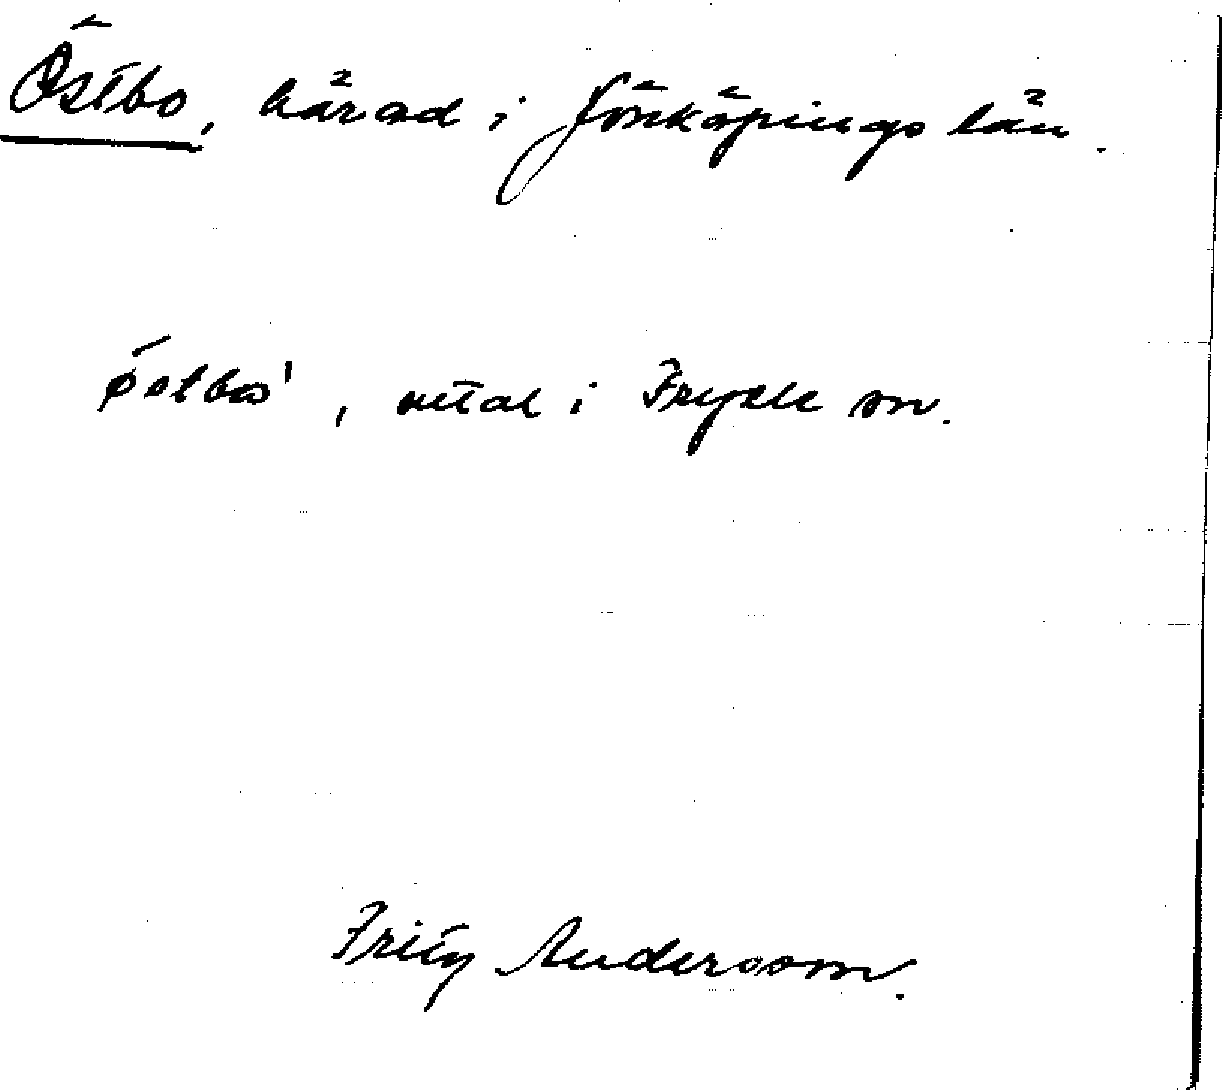 Östbo, härad i Jönköpings län.
uttal i Fryele sn.
Fritz Andersson.